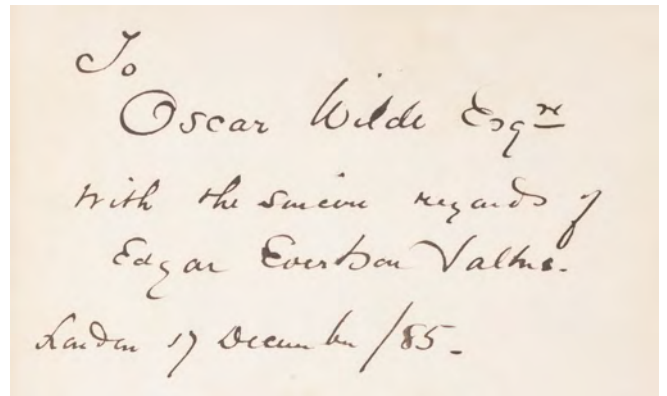 To
Oscar Wilde Esqre
With the sincere regards of
Edgar Evertson Saltus.
London 17 December /85.